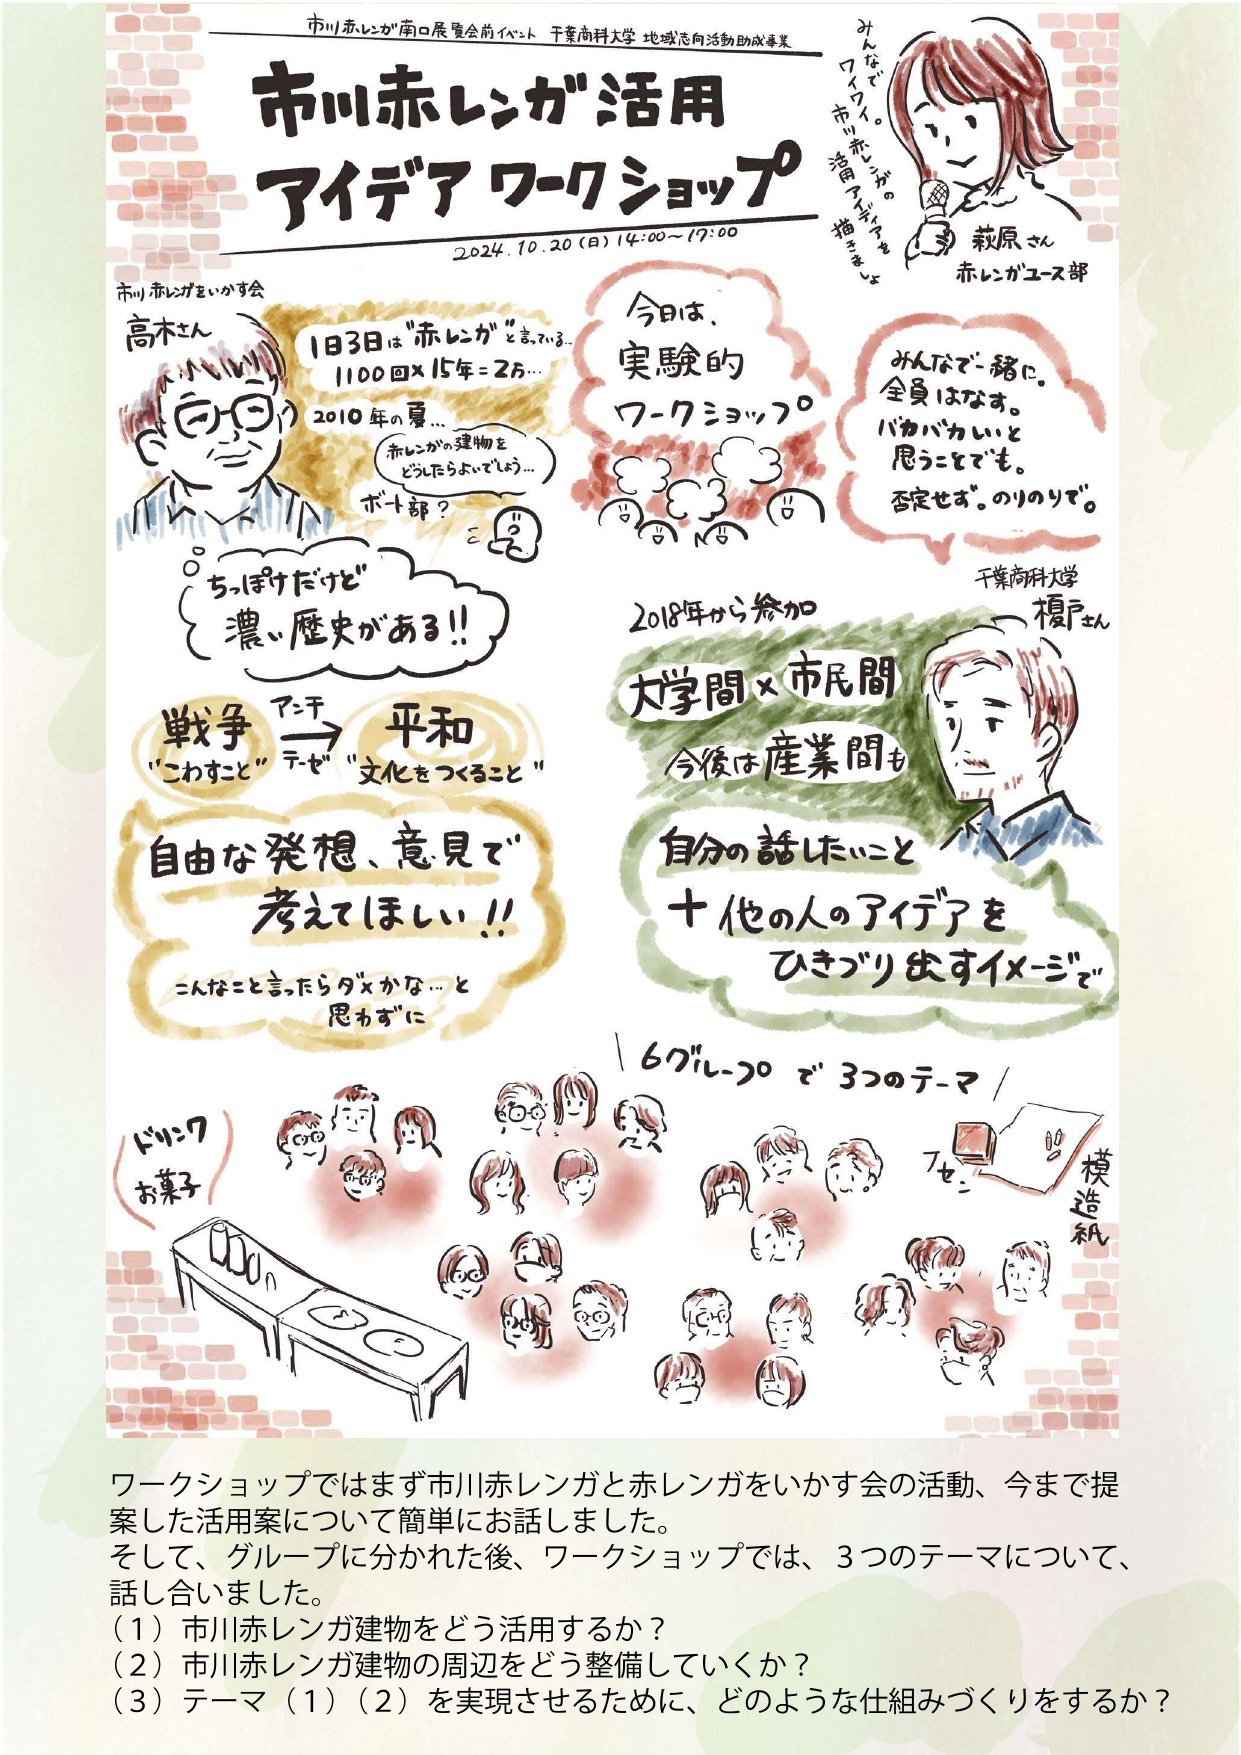 市川赤レンガ南口展覧会前イベント 千葉商科大学 地域志向活動助成事業
市川赤レンガ活用
アイデアワークショップ
2024.10.20(日)14:00~17:00
みんなで
ワイワイ。
市川赤レンガの
活用アイディアを
描きましょ
萩原さん
赤レンガユース部
市川赤レンガをいかす会
高木さん
1日3日は"赤レンガ"と言っている…
1100回×15年=2万…
2010年の夏…
赤レンガの建物を
どうしたらよいでしょう…
ボート部?
ちっぽけだけど
濃い歴史がある!!
今日は、
実験的
ワークショップ
みんなで一緒に。
全員はなす。
バカバカしいと
思うことでも。
否定せず。のりのりで。
戦争
"こわすこと"
アンチ
テーゼ
平和
"文化をつくること"
自由な発想、意見で
考えてほしい!!
こんなこと言ったらダメかな…と
思わずに
千葉商科大学
榎戸さん
2018年から参加
大学間×市民間
今後は産業間も
自分の話したいこと
+他の人のアイデアを
ひきづり出すイメージで
6グループで3つのテーマ
ドリンク
お菓子
フセン
模造紙
ワークショップではまず市川赤レンガと赤レンガをいかす会の活動、今まで提
案した活用案について簡単にお話しました。
そして、グループに分かれた後、ワークショップでは、3つのテーマについて、
話し合いました。
(1)市川赤レンガ建物をどう活用するか?
(2)市川赤レンガ建物の周辺をどう整備していくか?
(3)テーマ(1)(2)を実現させるために、どのような仕組みづくりをするか?